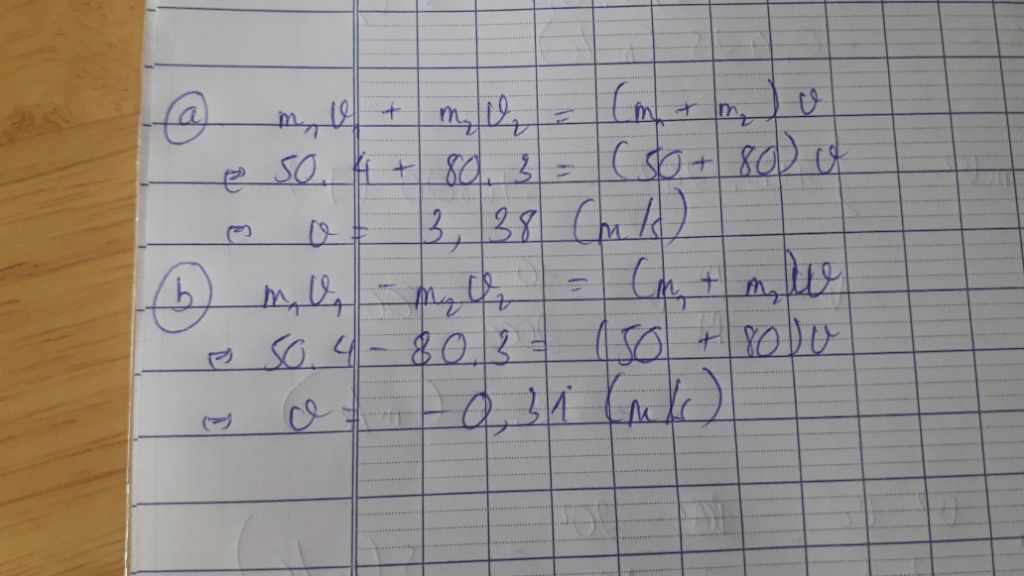 a m₁v₁ + m₂v₂ = (m₁ + m₂)v
⇔ 50.4 + 80.3 = (50 + 80)v
⇔ v = 3,38 (m/s)
b m₁v₁ - m₂v₂ = (m₁ + m₂)v
⇔ 50.4 - 80.3 = (50 + 80)v
⇔ v = -0,31 (m/s)